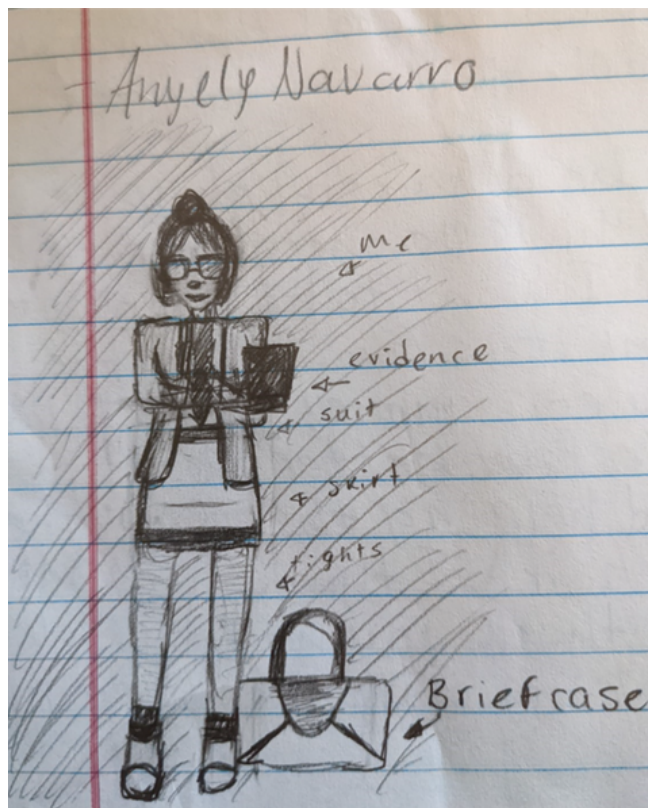 - Anyely Navarro
me
evidence
suit
skirt
tights
Briefcase